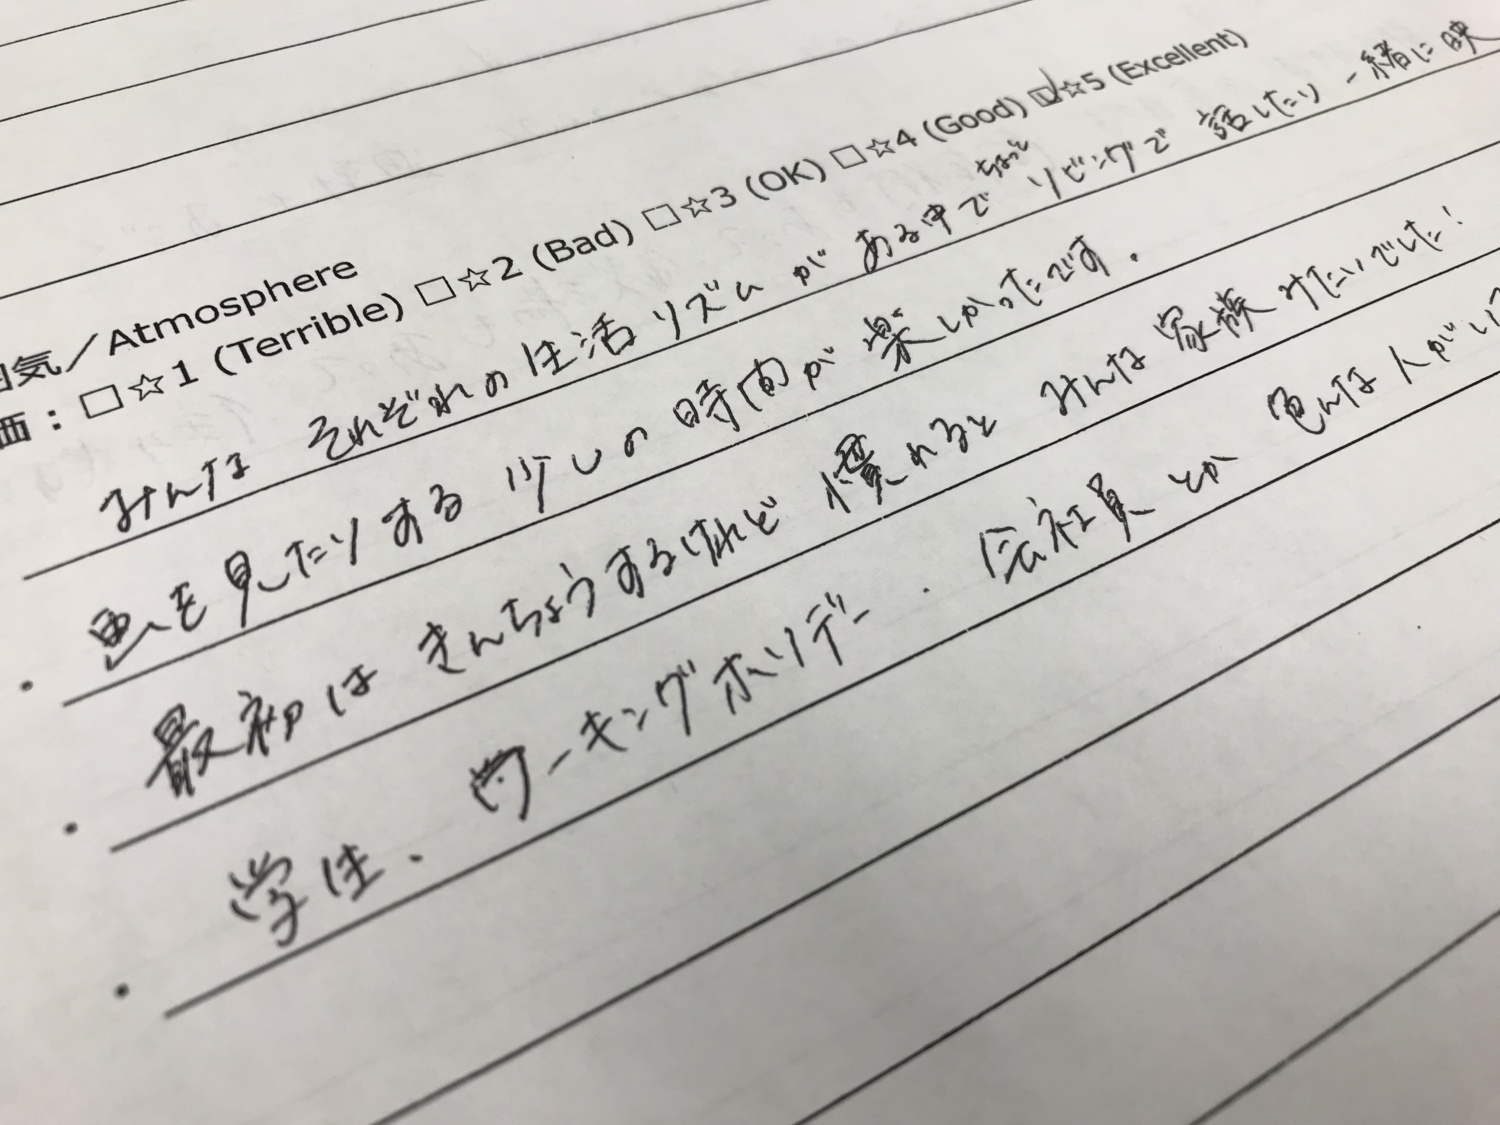 囲気／Atmosphere
価：□☆1 (Terrible) □☆2 (Bad) □☆3 (OK) □☆4 (Good) ☑☆5 (Excellent)
みんな それぞれの生活リズムが ある中で ちょっと リビングで 話したり 一緒に映
画を見たりする 少しの時間が 楽しかったです.
・最初は きんちょうするけれど 慣れると みんな 家族みたいでした!
・学生. ワーキングホリデー. 会社員 とか 色んな人がいて
・